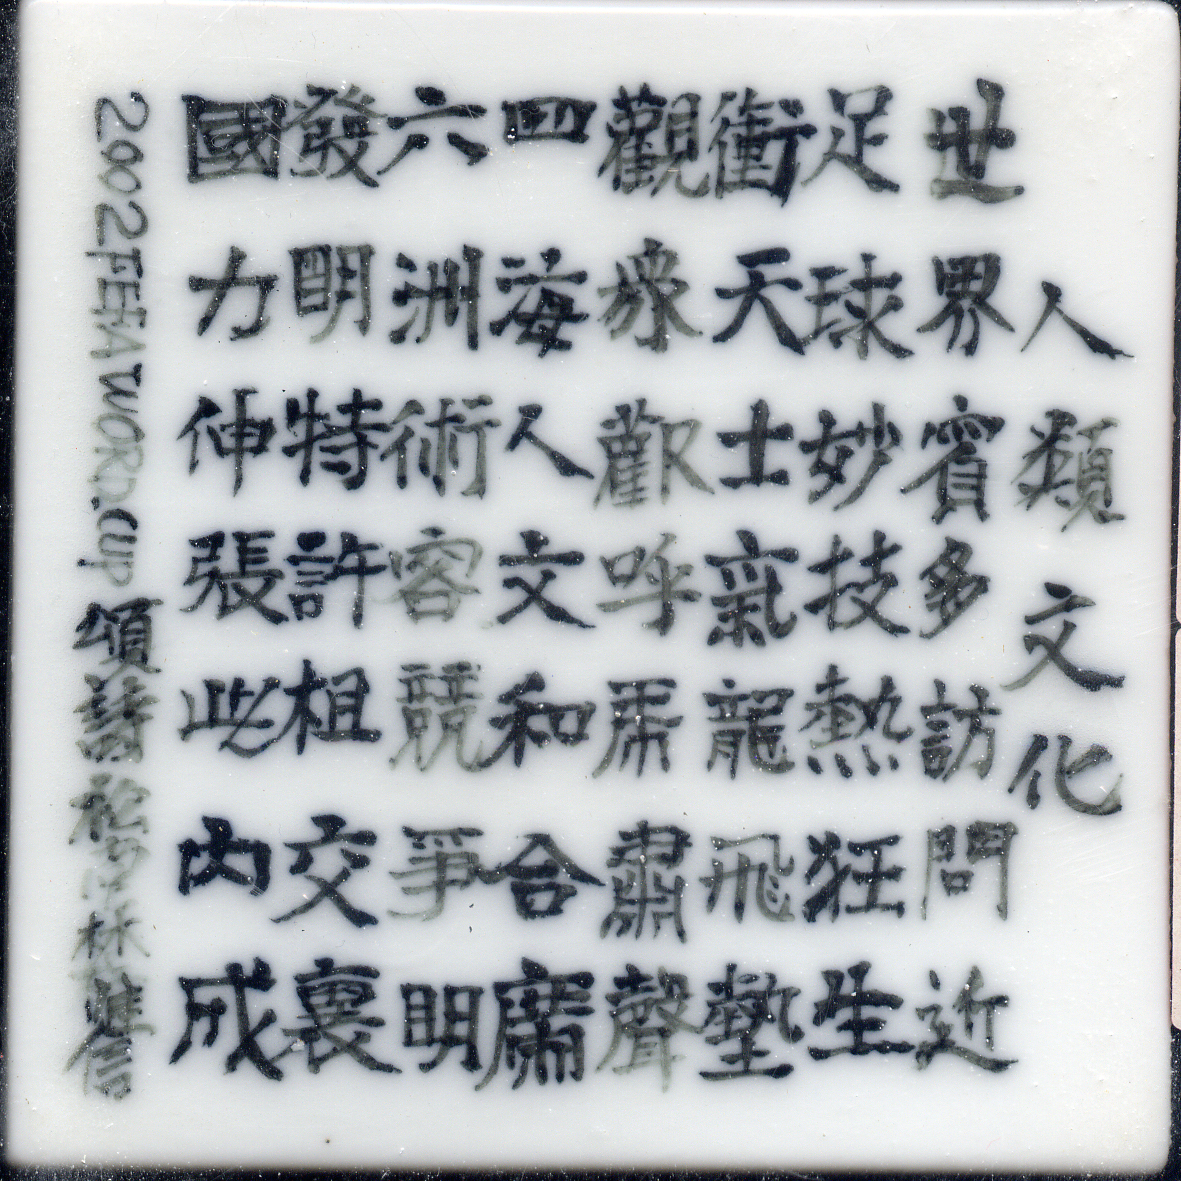 人類文化
世界賓多訪問近
足球妙技熱狂生
衝天士氣龍飛墊
觀衆歡呼庸肅聲
四海人文和合席
六洲術容競爭明
發明特許租交裏
國力伸張此內成
2002 FIFA WORLD.CUP 頌詩 林